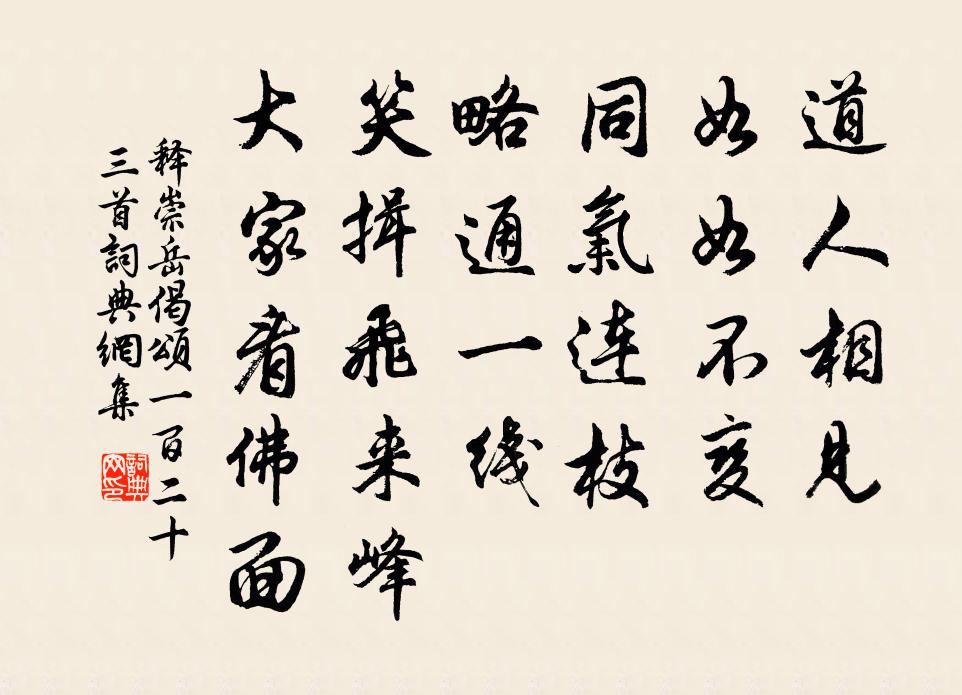 道人相见
如如不变
同氣连枝
略通一线
笑揖飛来峰
大家看佛面
释崇岳偈頌一百二十
三首詞典網集
詞典网印